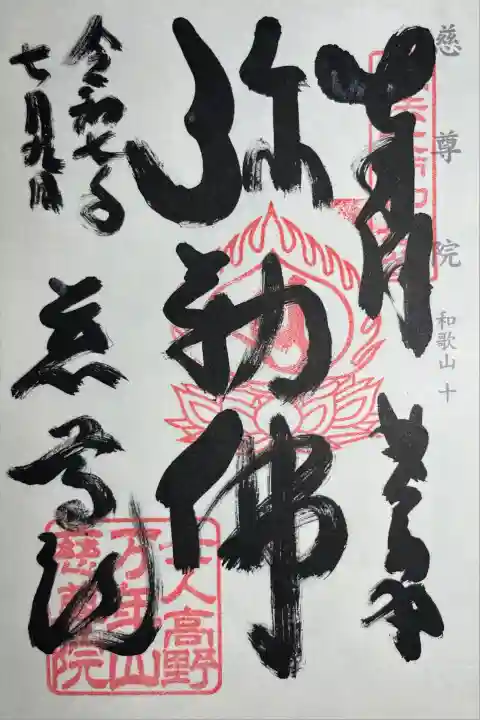 慈尊院 和歌山 十
弥勒佛
慈尊院
令和七年
七月九日
女人高野
万年山
慈尊院